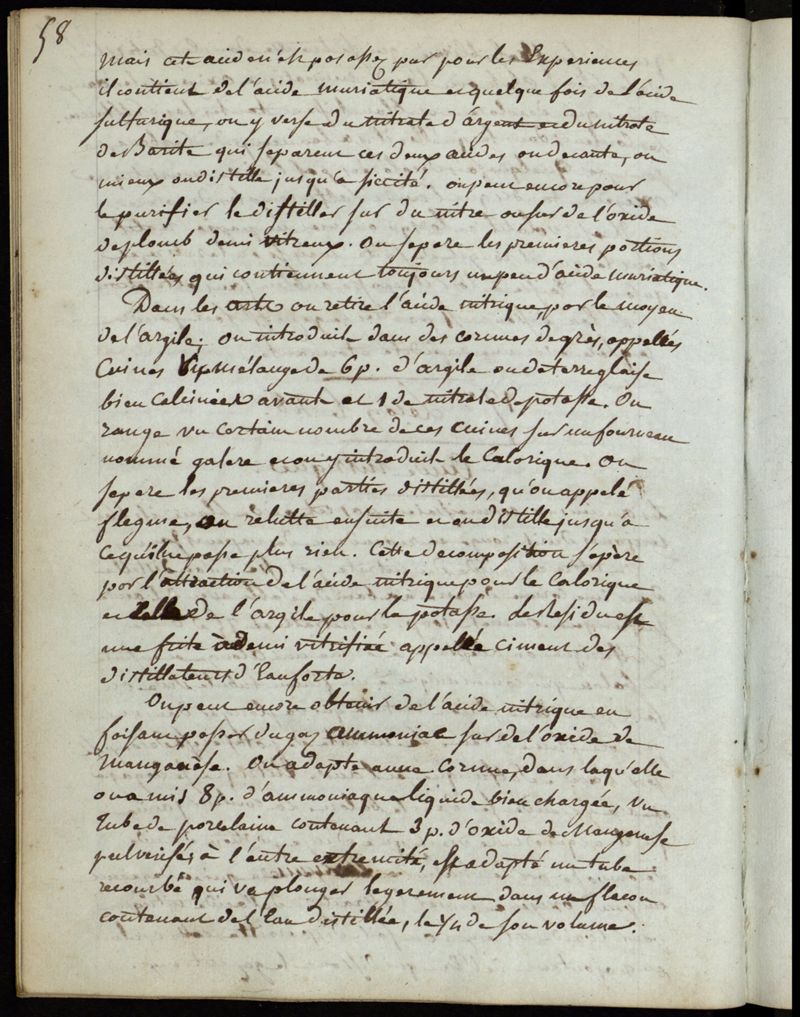 58
mais cet acide n'est pas assez pur pour les Experiences
il contient de l'acide muriatique et quelque fois de l'acide
sulfurique, on y verse du nitrate d'argent et du nitrate
de Barite qui separent ces deux acides on decante, ou
mieux on distille jusqu'a siccité. on peut encore pour
le purifier le distiller sur du nitre ou sur de l'oxide
de plomb demi vitreux. On separe les premieres portions
distillées qui contiennent toujours un peu d'acide muriatique.
Dans les arts on retire l'acide nitrique, par le moyen
de l'argile; on introduit dans des cornues de grès, appellés
Cuines un mélange de 6 p. d'argile ou de terre glaise
bien calcinée avant et 1 de nitrate de potasse. On
range un certain nombre de ces cuines sur un fourneau
nommé galere et on y introduit le Calorique. On
separe les premieres parties distillées, qu'on appelé
flegme, on relutte ensuite et on distille jusqu'a
ce qu'il ne passe plus rien. Cette decomposition s'opere
par l'attraction de l'acide nitrique pour le Calorique
et celle de l'argile pour la potasse. Le Residu est
une frite à demi vitrifiée appellée ciment des
distillateurs d'Eau forte.
On peut encore obtenir de l'acide nitrique en
faisant passer du gaz ammoniac sur de l'oxide de
Manganese. On adapte a une Cornue, dans laqu'elle
on a mis 8 p. d'ammoniaque liquide bien chargée, un
tube de porcelaine contenant 3 p. d'oxide de Manganese
pulverisés, à l'autre extremité, est adapté un tube
recourbé qui va plonger legerement dans un flacon
contenant de l'Eau distillée, le 1/4 de son volume.